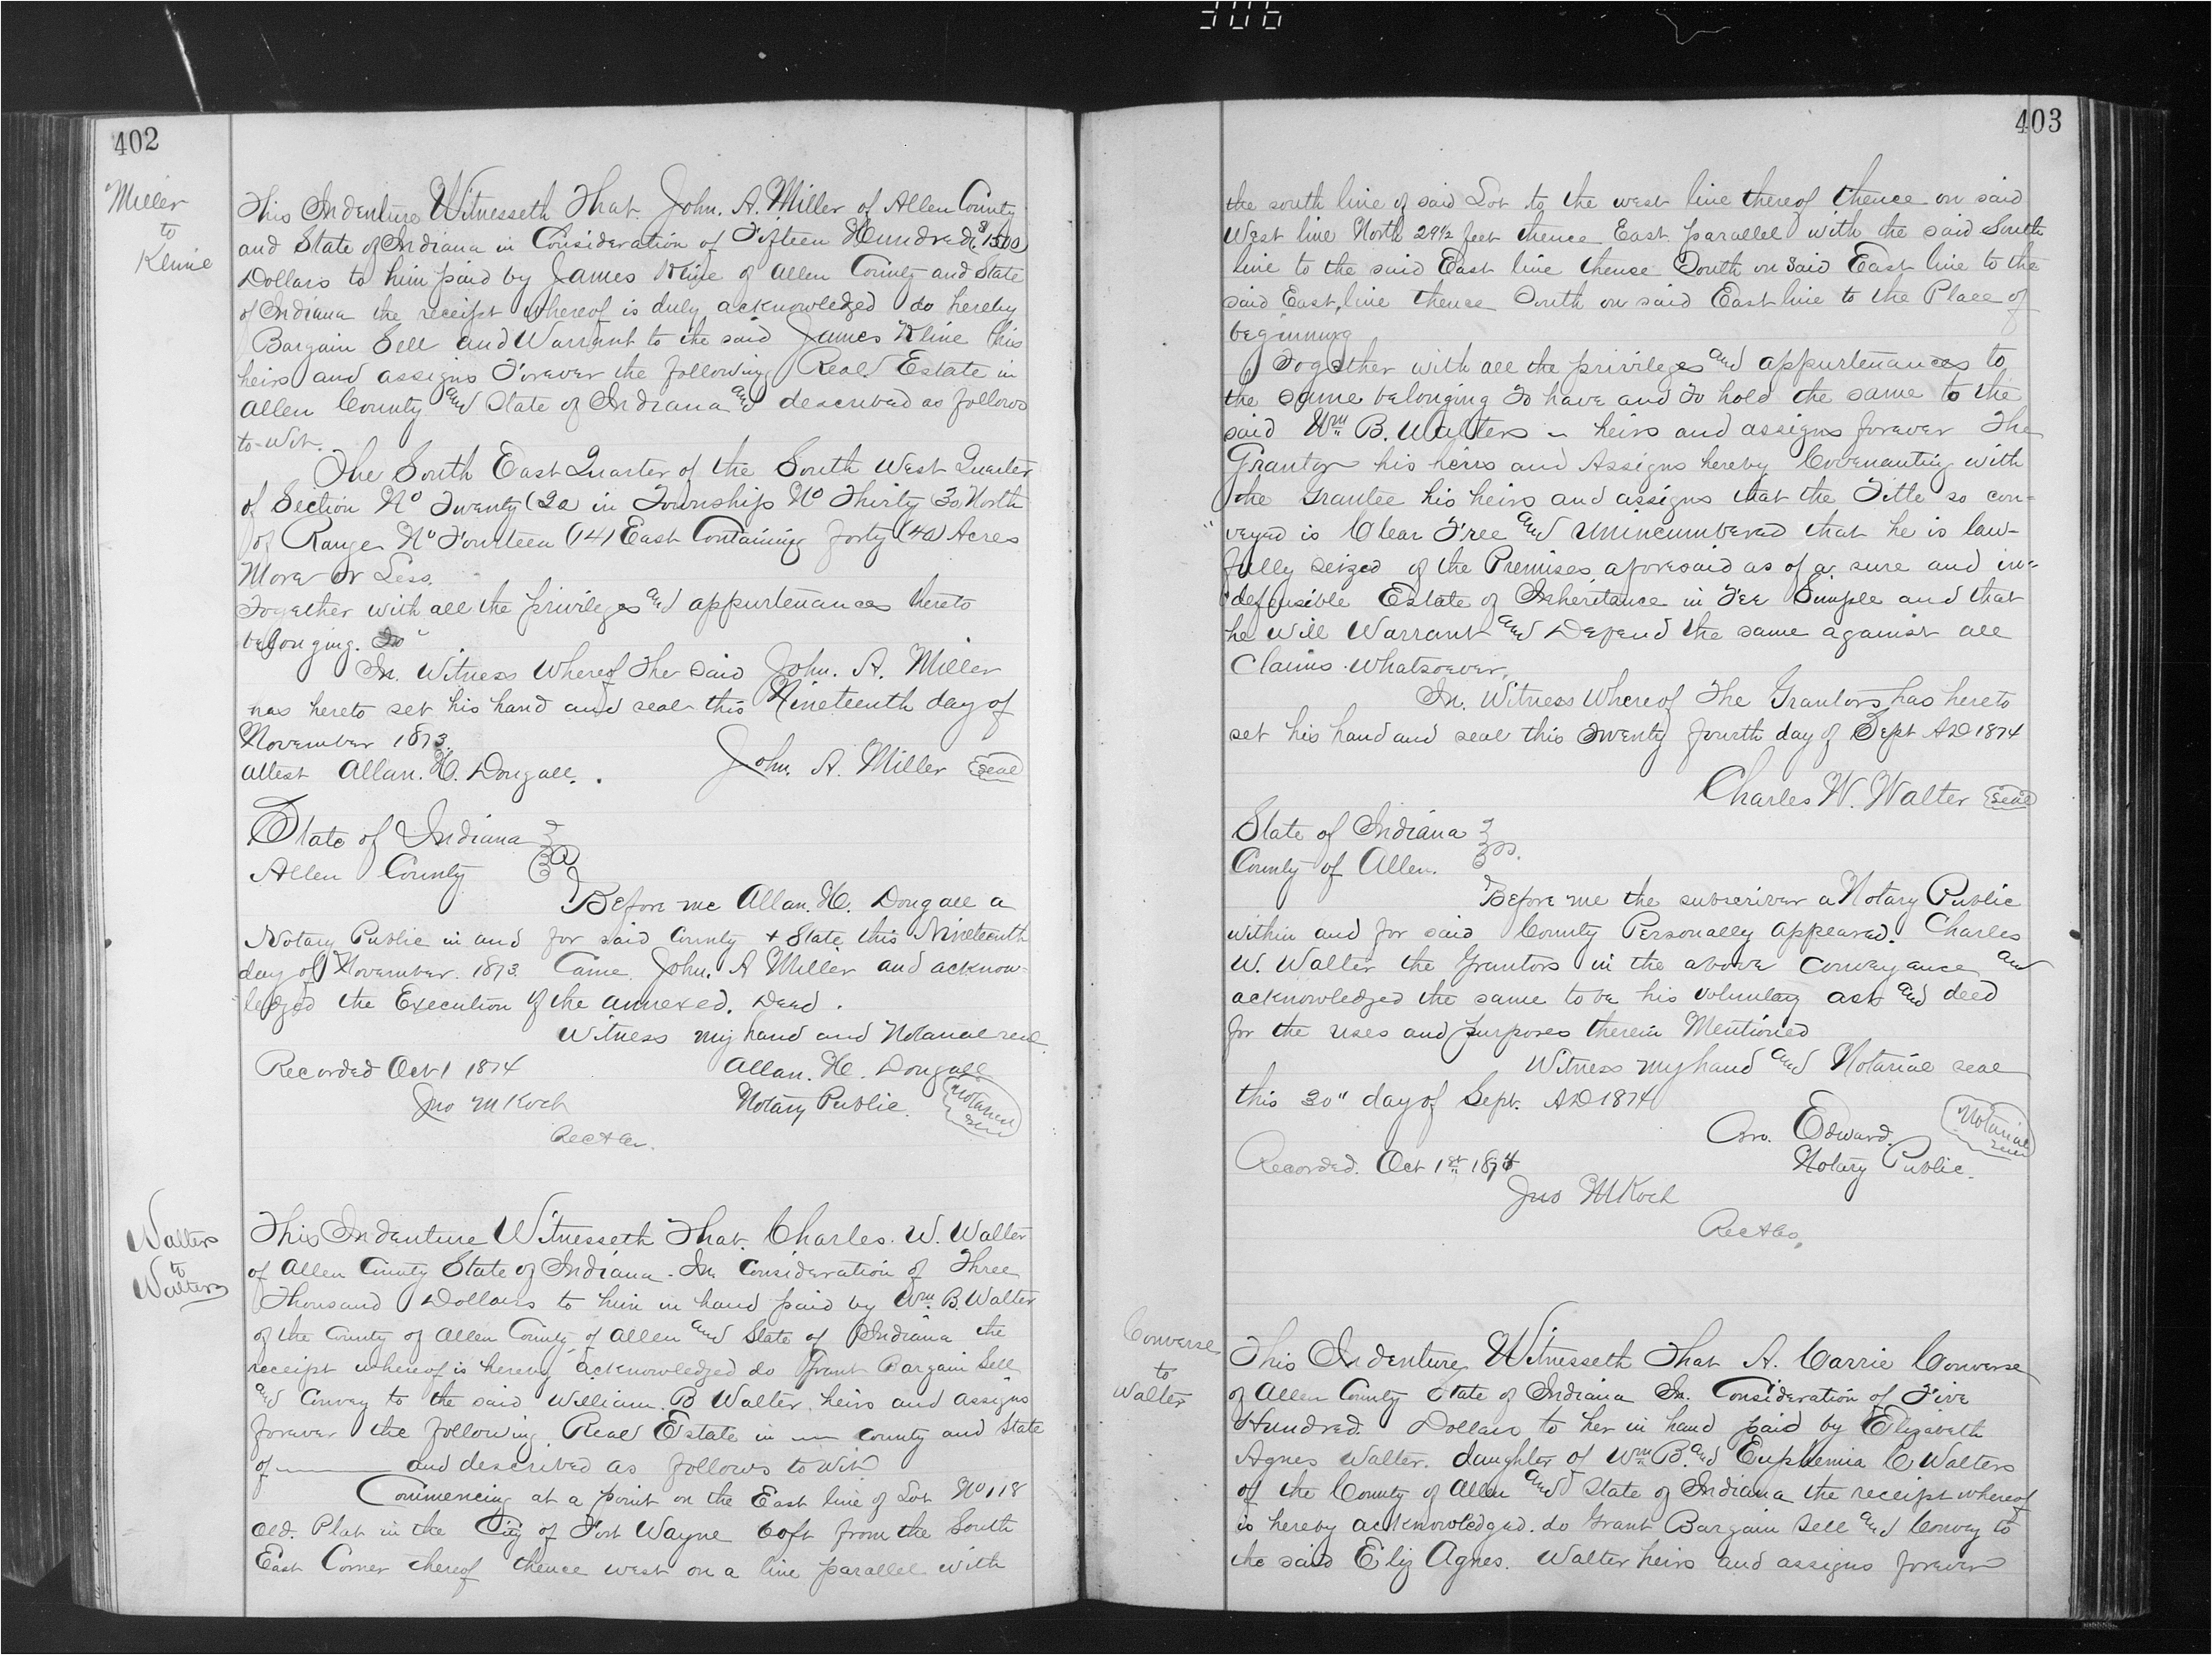 306
402
Miller
to
Kline
This Indenture Witnesseth That John. A. Miller of Allen County
and State of Indiana in Consideration of Fifteen Hundred ($1500)
Dollars to him paid by James Kline of Allen County and State
of Indiana the receipt whereof is duly acknowledged do hereby
Bargain Sell and Warrant to the said James Kline his
heirs and assigns Forever the following Real Estate in
Allen County and State of Indiana and described as follows
to-wit.
The South East Quarter of the South West Quarter
of Section No Twenty (20) in Township No Thirty 30 North
of Range No Fourteen (14) East Containing forty (40) Acres
More or Less.
Together with all the privileges and appurtenances thereto
belonging. To
In. Witness Whereof The said John. A. Miller
has hereto set his hand and seal this Nineteenth day of
November 1873.
attest Allan. H. Dougall. John. A. Miller Seal
State of Indiana
Allen County
Before me Allan. H. Dougall a
Notary Public in and for said County + State this Nineteenth
day of November. 1873. Came John. A Miller and acknow-
ledged the Execution of the annexed. Deed.
Witness my hand and Notarial seal
Recorded Oct 1 1874 Allan. H. Dougall
Jno M Koch Notary Public. Notarial Seal
Walters
to
Walters
This Indenture Witnesseth That. Charles. W. Walter
of Allen County State of Indiana. In Consideration of Three
Thousand Dollars to him in hand paid by Wm. B. Walter
of the County of Allen County of Allen and State of Indiana the
receipt whereof is hereby acknowledged do Grant Bargain Sell
and Convey to the said William. B Walter. heirs and assigns
forever the following Real Estate in — County and State
of — and described as follows to wit
Commencing at a point on the East line of Lot No 118
Old. Plat in the City of Fort Wayne 60 ft from the South
East Corner thereof thence west on a line parallel with
403
the south line of said Lot to the west line thereof thence on said
West line North 29½ feet thence East parallel with the said South
line to the said East line thence South on said East line to the
said East line thence South on said East line to the Place of
beginning
Together with all the privileges and appurtenances to
the same belonging To have and To hold the same to the
said Wm B. Walters — heirs and assigns forever The
Grantor his heirs and Assigns hereby Covenanting with
the Grantee his heirs and assigns that the Title so con=
veyed is Clear Free and Unincumbered that he is law-
fully seized of the Premises aforesaid as of a sure and in=
defensible Estate of Inheritance in Fee Simple and that
he will Warrant and Defend the same against all
Claims whatsoever.
In. Witness Whereof The Grantors has hereto
set his hand and seal this Twenty fourth day of Sept AD 1874
Charles W. Walter Seal
State of Indiana
County of Allen. ss.
Before me the subscriber a Notary Public
within and for said County Personally appeared. Charles
W. Walter the Grantors in the above conveyance and
acknowledged the same to be his voluntary act and deed
for the uses and purposes therein Mentioned
Witness my hand and Notarial seal
this 30" day of Sept. AD 1874
Edward.
Notarial Seal
Recorded. Oct 1st 1874 Notary Public.
Jno M Koch
Converse
to
Walter
This Indenture Witnesseth That A. Carrie Converse
of Allen County State of Indiana In. Consideration of Five
Hundred. Dollars to her in hand paid by Elizabeth
Agnes Walter. daughter of Wm B. and Euphemia C Walters
of the County of Allen and State of Indiana the receipt whereof
is hereby acknowledged. do Grant Bargain Sell and Convey to
the said Eliz Agnes. Walter heirs and assigns forever